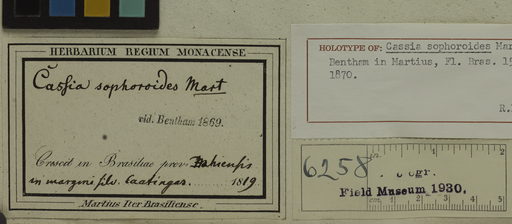 HERBARIUM REGIUM MONACENSE
Cassia sophoroides Mart
vid. Bentham 1869.
Crescit in Brasiliae prov. Bahiensis
in margine silv. Caatingas. 1819.
Martius Iter Brasiliense.
HOLOTYPE OF: Cassia sophoroides Mar
Bentham in Martius, Fl. Bras. 15
1870.
R.
6258
ogr.
Field Museum 1930.
in 1 2
1 2 3 4 5